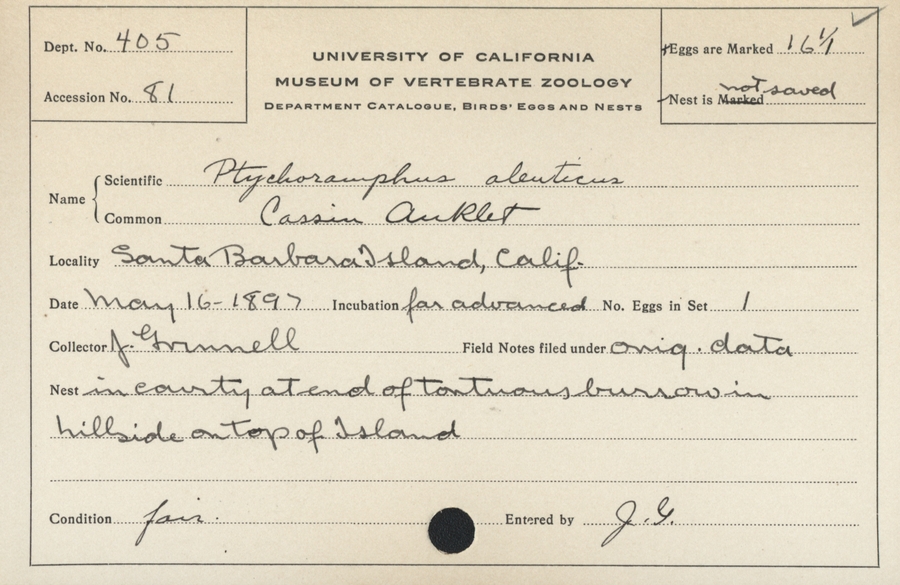 Dept. No. 405
Accession No. 81
UNIVERSITY OF CALIFORNIA
MUSEUM OF VERTEBRATE ZOOLOGY
DEPARTMENT CATALOGUE, BIRDS' EGGS AND NESTS
Eggs are Marked 16 1/1
Nest is Marked not saved
Name
Scientific Ptychoramphus aleuticus
Common Cassin Auklet
Locality Santa Barbara Island, Calif.
Date May 16-1897 Incubation far advanced No. Eggs in Set 1
Collector J. Grinnell Field Notes filed under orig. data
Nest in cavity at end of tortuous burrow in
hillside on top of Island
Condition fair. Entered by J. G.